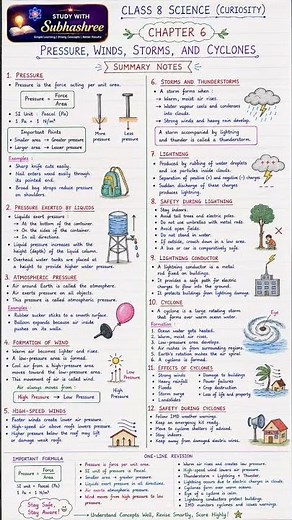 STUDY WITH
Subhashree
CLASS 8 SCIENCE (CURIOSITY)
CHAPTER 6
PRESSURE, WINDS, STORMS, AND CYCLONES
SUMMARY NOTES
1. PRESSURE
• Pressure is the force acting per unit area.
Pressure = Force
Area
• SI Unit : Pascal (Pa)
• 1 Pa = 1 N/m²
Important Points
• Smaller area → Greater pressure
• Larger area → Lower pressure
More pressure
Less pressure
Examples :
• Sharp knife cuts easily.
• Nail enters wood easily through its pointed end.
• Broad bag straps reduce pressure on shoulders.
2. PRESSURE EXERTED BY LIQUIDS
Liquids exert pressure :
→ At the bottom of the container
→ On the sides of the container
→ In all directions
Liquid pressure increases with the height (depth) of the liquid column.
• Overhead water tanks are placed at a height to provide higher water pressure.
3. ATMOSPHERIC PRESSURE
• Air around Earth is called the atmosphere.
• Air exerts pressure on all objects.
• This pressure is called atmospheric pressure.
Examples
• Rubber sucker sticks to a smooth surface.
• Balloon expands because air inside pushes on its walls.
4. FORMATION OF WIND
• Warm air becomes lighter and rises.
• A low-pressure area is formed.
• Cool air from a high-pressure area moves toward the low-pressure area.
• This movement of air is called wind.
Air always moves from :
High Pressure → Low Pressure
Low Pressure
High Pressure
5. HIGH-SPEED WINDS
• Faster winds create lower air pressure.
• High-speed air above roofs lowers pressure.
• Higher pressure below the roof may lift or damage weak roofs.
6. STORMS AND THUNDERSTORMS
• A storm forms when :
→ Warm, moist air rises.
→ Water vapour cools and condenses into clouds.
→ Strong winds and heavy rain develop.
A storm accompanied by lightning and thunder is called a thunderstorm.
7. LIGHTNING
• Produced by rubbing of water droplets and ice particles inside clouds.
• Separation of positive (+) and negative (-) charges
• Sudden discharge of these charges produces lightning.
8. SAFETY DURING LIGHTNING
• Stay indoors.
• Avoid tall trees and electric poles.
• Do not use umbrellas with metal rods.
• Avoid open fields.
• Do not stand in water.
• If outside, crouch down in a low area.
• A bus or car is comparatively safe.
9. LIGHTNING CONDUCTOR
• A lightning conductor is a metal rod fixed on buildings.
• It provides a safe path for electric charges to flow into the ground.
• It protects buildings from lightning damage.
10. CYCLONE
• A cyclone is a large rotating storm that forms over warm ocean water.
Formation :
1. Ocean water gets heated.
2. Warm, moist air rises.
3. Low-pressure area develops.
4. Air rushes in from surrounding regions.
5. Earth's rotation makes the air spiral.
6. A cyclone is formed.
Eye
11. EFFECTS OF CYCLONES
• Strong winds
• Heavy rainfall
• Floods
• Storm surge
• Landslides
• Damage to buildings
• Power failures
• Crop destruction
• Loss of life and property
12. SAFETY DURING CYCLONES
• Follow IMD weather warnings.
• Keep an emergency kit ready.
• Move to cyclone shelters if advised.
• Stay indoors.
• Keep away from damaged electric wires.
IMPORTANT FORMULA
Pressure = Force
Area
• SI Unit = Pascal (Pa)
• 1 Pa = 1 N/m²
ONE-LINE REVISION
• Pressure is force per unit area.
• SI unit of pressure is Pascal.
• Smaller area = greater pressure.
• Liquids exert pressure in all directions.
• Air exerts atmospheric pressure.
• Wind moves from high pressure to low pressure.
• Warm air rises and creates low pressure.
• High-speed wind lowers air pressure.
• Thunderstorm = Lightning + Thunder.
• Lightning occurs due to electric charges in clouds.
• Cyclones form over warm oceans.
• Eye of a cyclone is calm.
• Lightning conductors protect buildings.
• IMD monitors cyclones and issues warnings.
Stay Safe,
Stay Aware!
Understand Concepts Well, Revise Smartly, Score Highly!